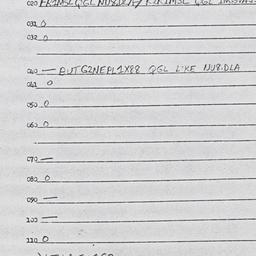 020
031 0
032 0
040 — BUTG2NEPL1X88 QGL LIKE NU8.DLA
041 0
050 0
060 0
070 —
080 0
090 —
100 —
110 0